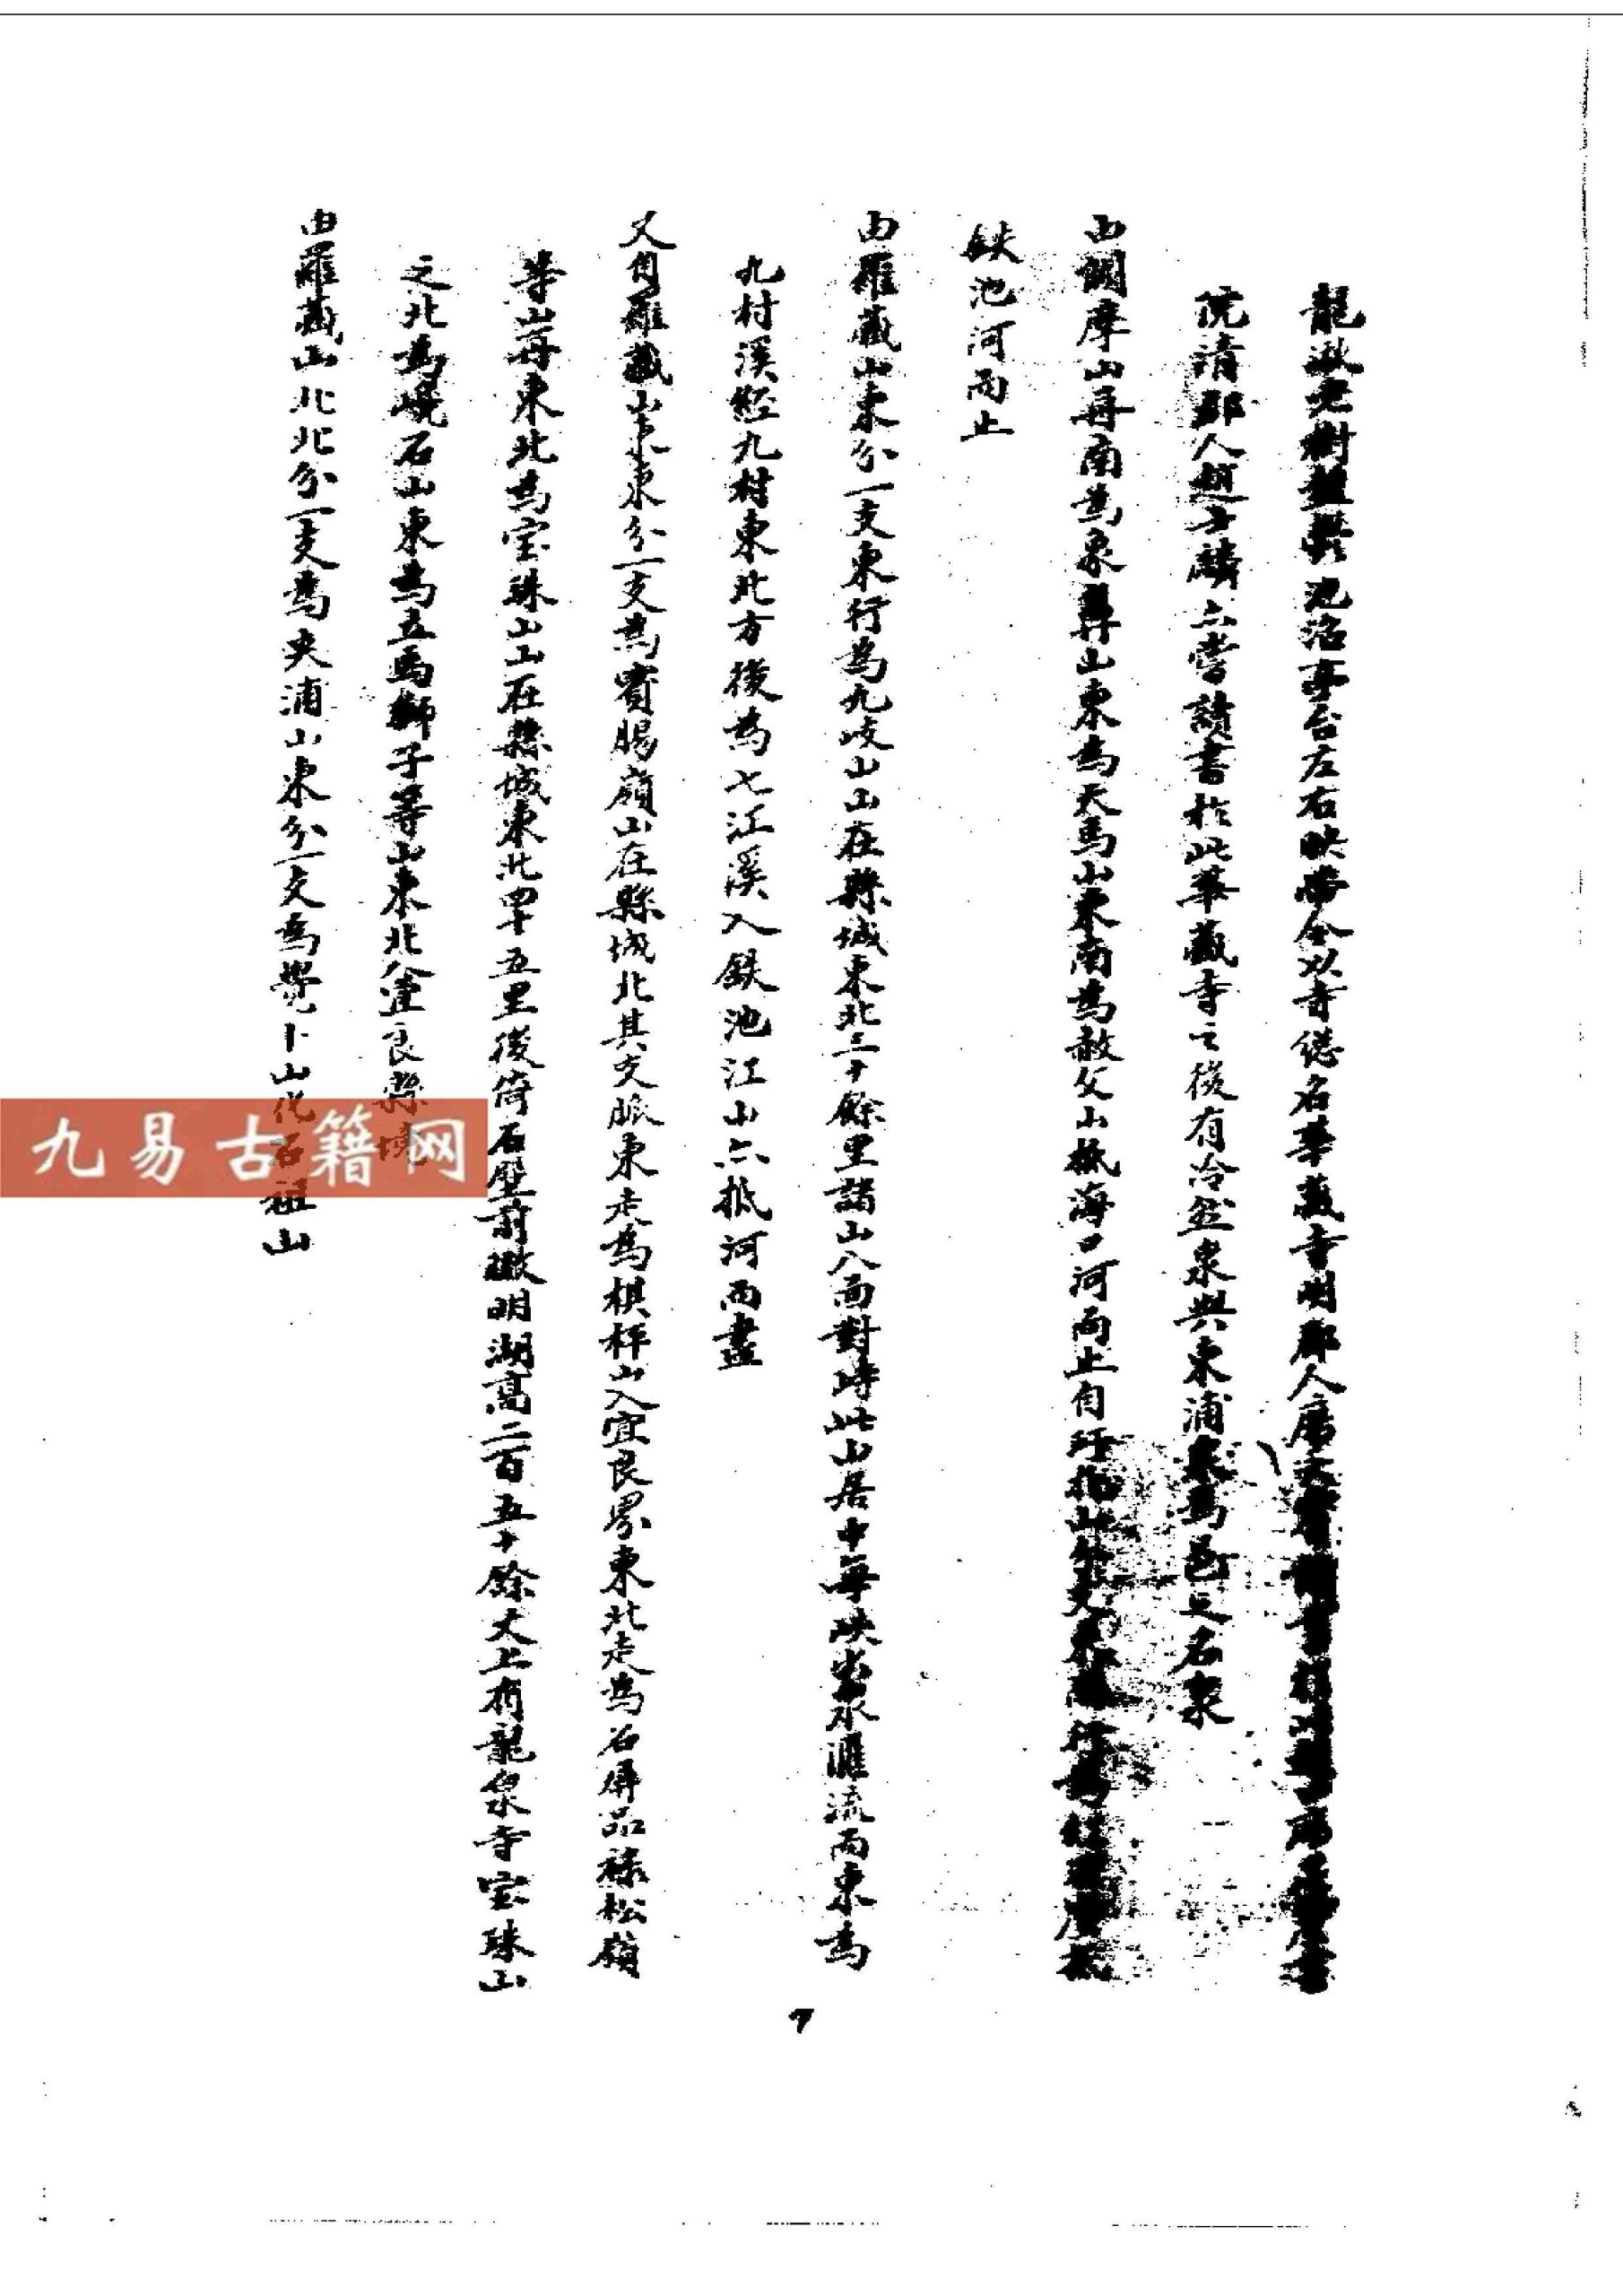 龍湫老樹盤鬱池沼亭台左右映帶今以寺僧名華藏寺明郡人唐
院清郡人趙士麟亦嘗讀書於此華藏寺之後有冷然泉與東浦泉為邑之名泉
由關摩山再南為泉彝山東為天馬山東南為赦父山抵海口河而止自
鉄池河而止
由羅藏山東分一支東行為九岐山山在縣城東北二十餘里諸山八面對峙此山居中每映當水滙流而東為
九村溪經九村東北方後為七江溪入鉄池江山亦抵河而盡
又自羅藏山東東分一支為賓賜嶺山在縣城北其支脈東走為棋枰山入宜良界東北走為石屏品祿松嶺
等山再東北為宝珠山山在縣城東北四十五里後倚石壁前撤明湖高二百五十餘丈上有龍泉寺宝珠山
之北為峴石山東為五馬獅子等山東北入宜良縣境
由羅藏山北北分一支為夾浦山東分一支為覺卜山化石祖山
7
九易古籍网